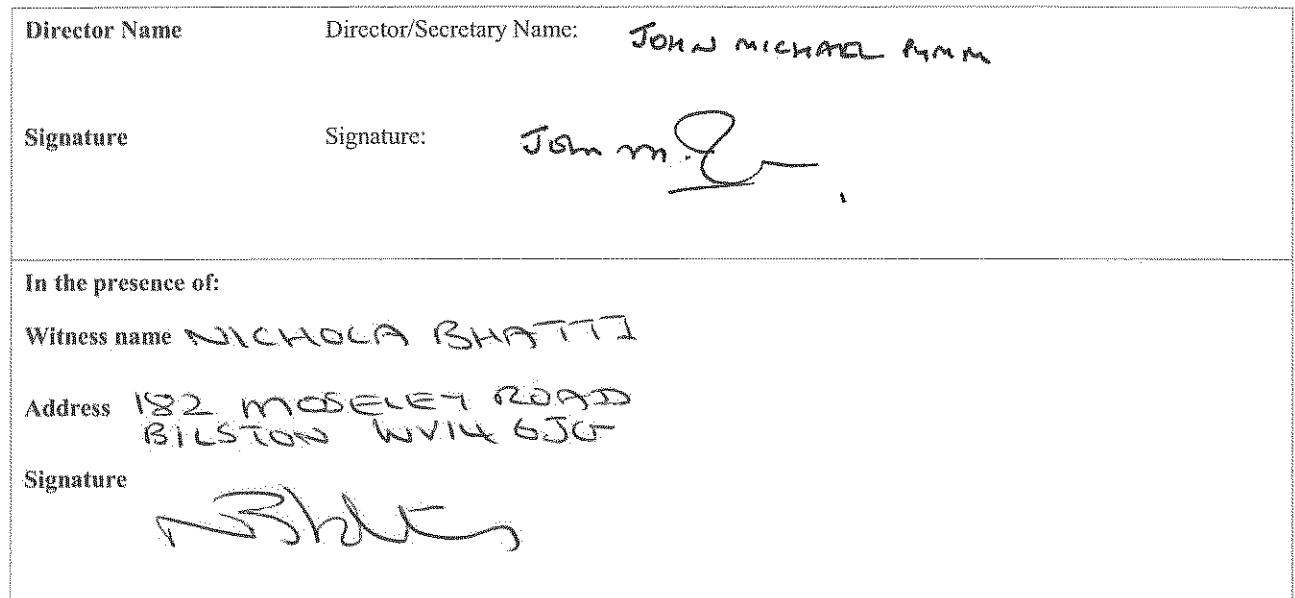 Director Name Director/Secretary Name: JOHN MICHAEL PYMM
Signature Signature: John m.
In the presence of:
Witness name NICHOLA BHATTI
Address 182 MOSELEY ROAD
BILSTON WV14 6JG
Signature